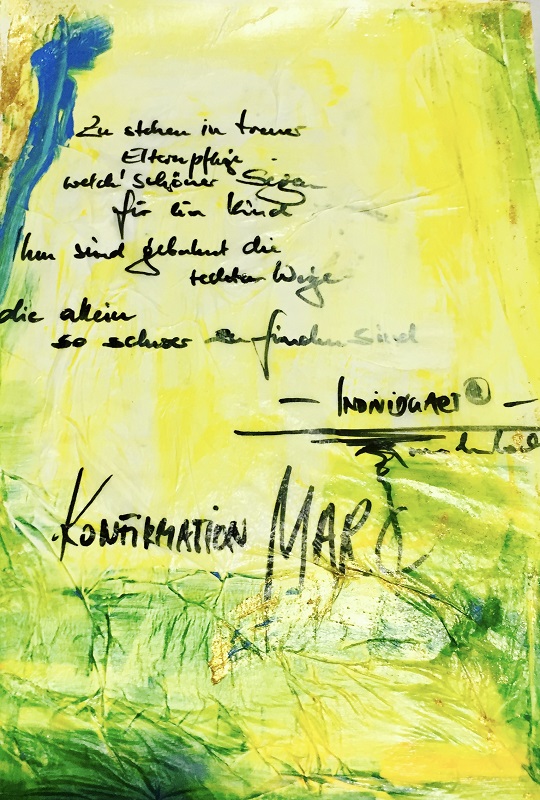 Zu stehen in treuer
Elternpflege
welch' schöner Segen
für ein Kind
Ihm sind gebahnt die
rechten Wege
die allein
so schwer zu finden sind
- INDIVIDUART® -
KONFIRMATION MARC